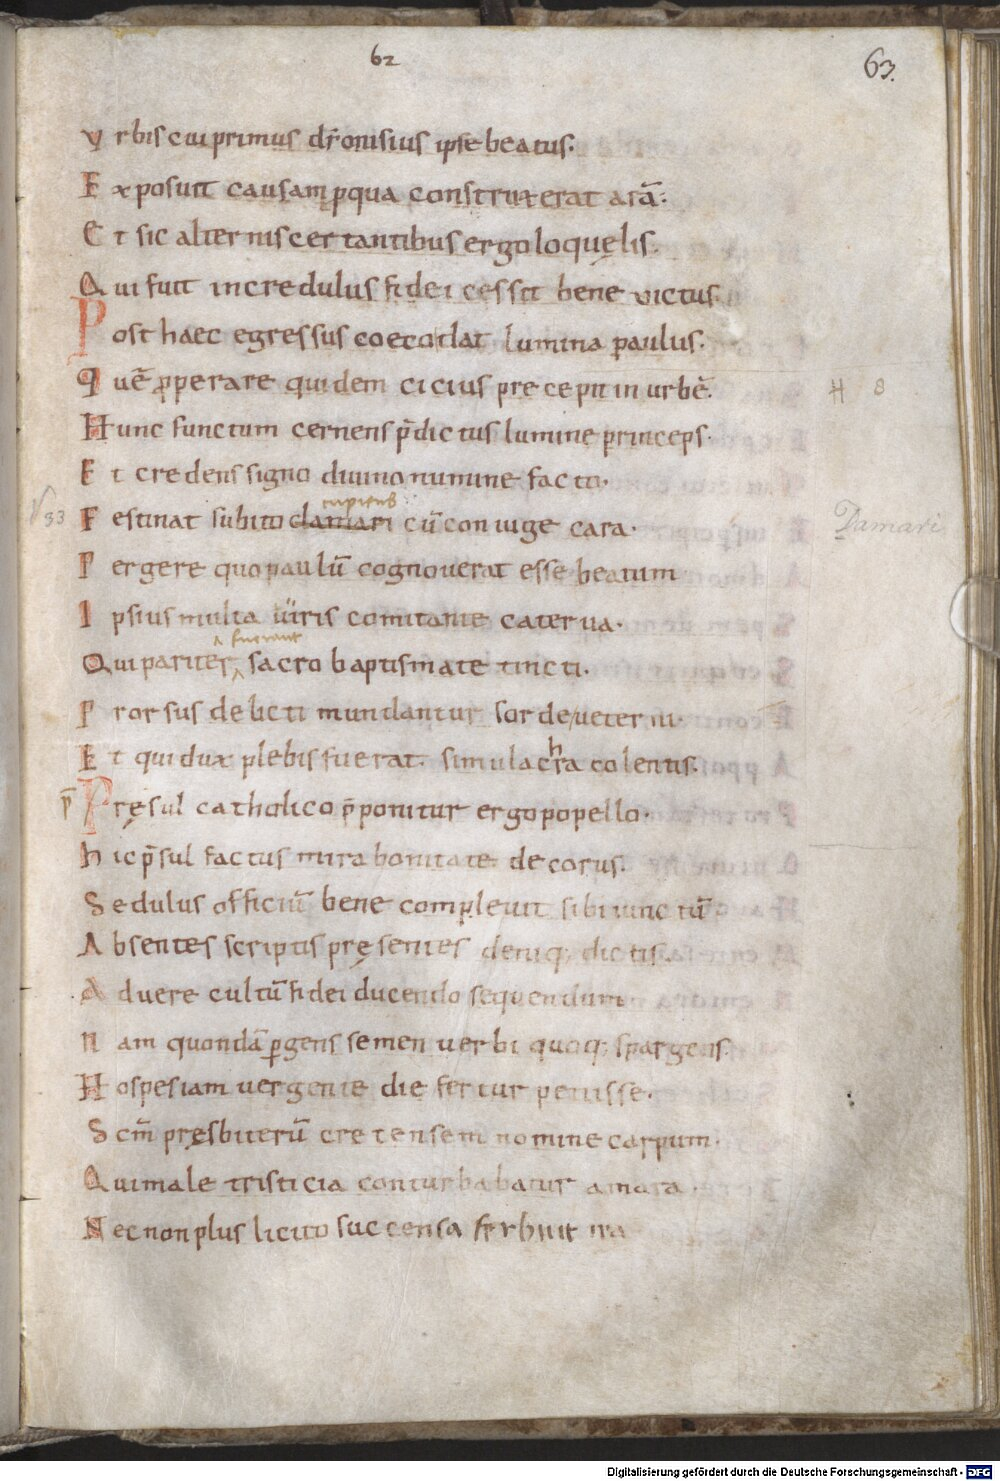 62
63.
Vrbis cui primus dẏonisius ipse beatus.
Exposuit causam ꝑqua construxerat arā:
Et sic alternis certantibus ergo loquęlis.
Qui fuit incredulus fidei cessit bene victus.
Post haec egressus coeco dat lumina paulus.
Quē ꝓperare quidem cicius precepit in urbē.
H 8
Hunc functum cernens p̄dictus lumine princeps.
Et credens signo diuino numine facto.
cupitus
33 Festinat subito damari cū coniuge cara.
Damaris
Pergere quo paulū cognouerat esse beatum
Ipsius multa uiris comitante caterua.
fuerant
Qui pariter sacro baptismate tincti.
Prorsus delicti mundantur sorde ueterni.
Et qui dux plebis fuerat simulachra colentis.
p̄ Pręsul catholico p̄ponitur ergo popello.
hic p̄sul factus mira bonitate decorus.
Sedulus officiū bene compleuit sibi iunctū
Absentes scriptis pręsentes deniq; dictis.
Aduere cultū fidei ducendo sequendum
nam quondā ꝑgens semen uerbi quoq; spargens.
Hospes iam uergente die fertur petiisse.
Scm̄ pręsbiterū cretensem nomine carpum.
Qui male tristicia conturbabatur amara.
Nec non plus licito succensa ferbuit ira
Digitalisierung gefördert durch die Deutsche Forschungsgemeinschaft - DFG